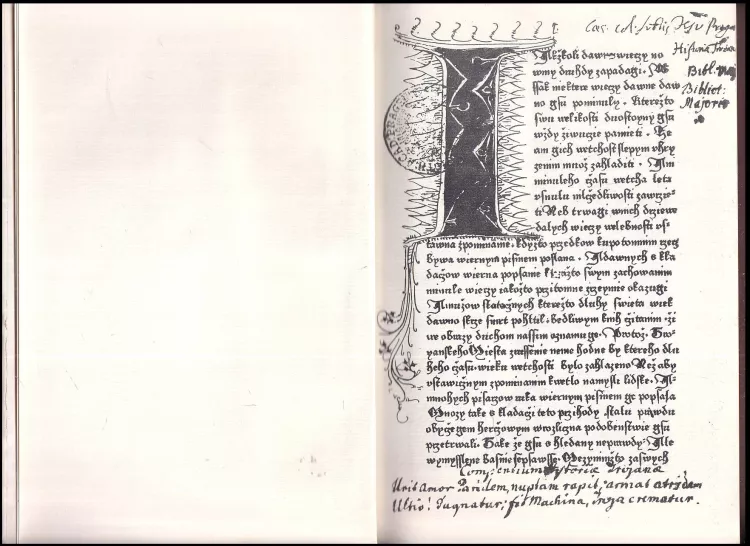 Cæs. col. Societ. Jesu
Historia Trojana
Bibliot:
Majoris
Ačžkoli dawne wieczy no
wmy druhdy zapadagi.
ssak niektere wieczy dawne daw
no gsu pominuly. Kterežto
swu welikosti duostoyny gsu
wždy žiwucie pamieti. Že
am gich wetchost slepym uhry
zenim muož zahladiti.
minuleho času wetcha leta
usnulu mlčedliwosti zawrzie
ti Neb trwagi wnich drziewe
dalych wieczy welebnosti us
tawna zpominanie. kdyžto przedkow kupotomnim rzecz
bywa wiernym pismem poslana. Adawnych skla
dačow wierna popsanie kteražto swym zachowanim
minule wieczy iakožto przitomne zgeymie okazugi
Amužow statečnych kterežto dluhy swieta wiek
dawno skrze smrt pohltil. bedliwym knih čitanim ži
we obrazy duchom nassim oznamuge. Protož. Tro
yanskeho Miesta zrussenie nenie hodne by ktereho dlu
heho času. wieku wetchosti bylo zahlazeno Než aby
ustawičnym zpominanim kwetlo namysli lidske.
mnohych pisarzow ruka wiernym pismem ge popsala
Mnozy take skladači teto przihody stalu prawdu
obyčegem herczowym wrozlična podobenstwie gsu
przetrwali. Take že gsu shledany neprawdy. Alle
wymysslene basnie sepsawsse. Mezymnižto zaswych
Compendium Historiæ Trojanæ
Urit amor Paridem, nuptam rapit, armat atridam
Ultio: Pugnatur; fit Machina, Troja crematur.